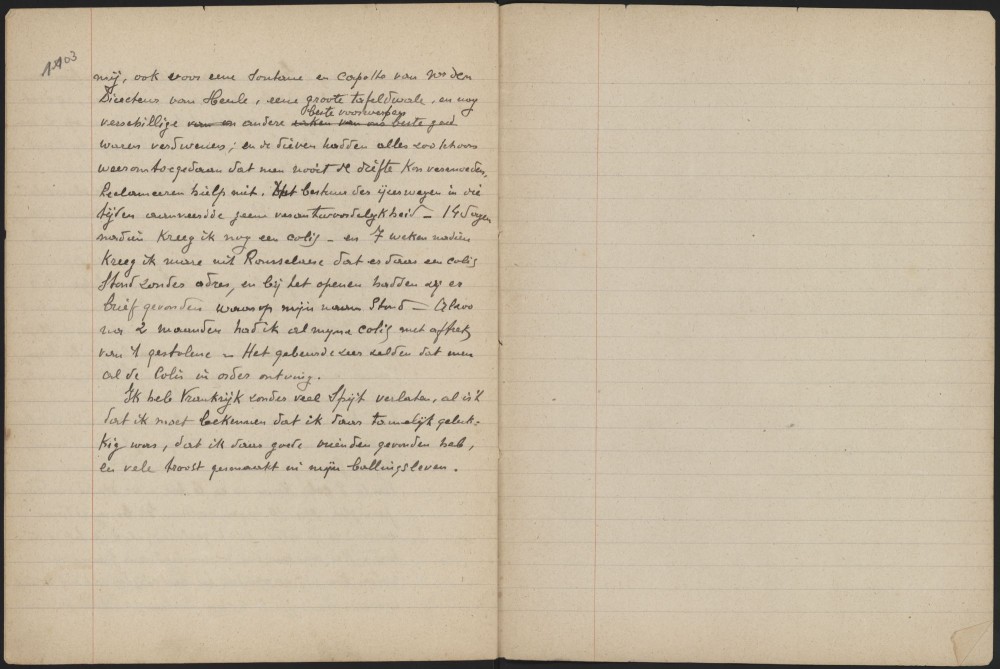 1403
mij, ook voor eene Soutane en capotte van
Directeur van Heule, eene groote tafeldwale, en nog
beste voorwerpen
verschillige van en andere beste goed
waren verdwenen; en de dieven hadden alles zoo schoon
weerom toegedaan dat men nooit de diefte kon vermoeden.
Reclameeren hielp niet. Het bestuur der ijzerwegen in die
tijden aanveerdde geene verantwoordelijkheid – 14 dagen
nadien kreeg ik nog een colij – en 7 weken nadien
kreeg ik mare uit Rousselaere dat er daar een colij
stond zonder adres, en bij het openen hadden zij er
brief gevonden waarop mijn naam stond – Alzoo
na 2 maanden had ik al myne colij met aftrek
van 't gestolene – Het gebeurde zeer zelden dat men
al de Colis in order ontving.
Ik heb Vrankrijk zonder veel spijt verlaten, al is 't
dat ik moet bekennen dat ik daar tamelijk geluk-
kig was, dat ik daar goede vrienden gevonden heb,
en vele troost gesmaakt in mijn ballingsleven.